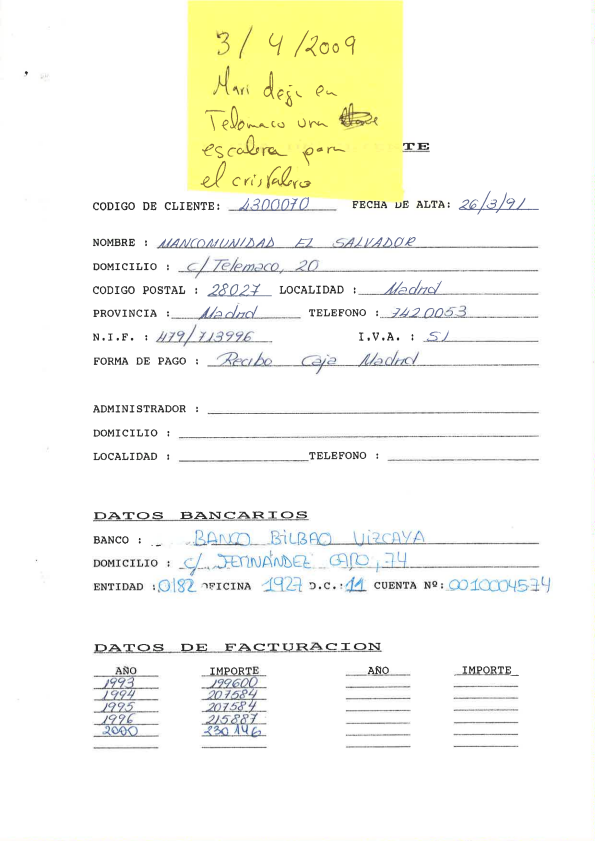 3/4/2009
Mari deje en
Telemaco una
escalera para
el cristalero
TE
CODIGO DE CLIENTE: 4300070 FECHA DE ALTA: 26/3/91
NOMBRE : MANCOMUNIDAD EL SALVADOR
DOMICILIO : c/ Telemaco, 20
CODIGO POSTAL : 28027 LOCALIDAD : Madrid
PROVINCIA : Madrid TELEFONO : 7420053
N.I.F. : 479/713996 I.V.A. : SI
FORMA DE PAGO : Recibo Caja Madrid
ADMINISTRADOR :
DOMICILIO :
LOCALIDAD : TELEFONO :
DATOS BANCARIOS
BANCO : BANCO BILBAO VIZCAYA
DOMICILIO : c/ CARO, 74
ENTIDAD : 0182 OFICINA 1927 D.C.: 11 CUENTA Nº: 0010004574
DATOS DE FACTURACION
AÑO IMPORTE AÑO IMPORTE
1993 199600
1994 207584
1995 207584
1996 215887
2000 230146